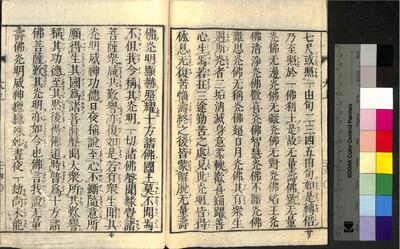 七尺或照一由旬二三四五由旬如是轉倍
乃至照於一佛刹土是故無量壽佛號無量
光佛無邊光佛無礙光佛無對光佛焰王光
佛清淨光佛歡喜光佛智慧光佛不斷光佛
難思光佛無稱光佛超日月光佛其有衆生
遇斯光者三垢消滅身意柔軟歡喜踊躍善
心生焉若在三塗勤苦之處見此光明皆得
休息無復苦惱壽終之後皆蒙解脫無量壽
佛光明顯赫照耀十方諸佛國土莫不聞焉
不但我今稱其光明一切諸佛聲聞緣覺諸
菩薩衆咸共歎譽亦復如是若有衆生聞其
光明威神功德日夜稱說至心不斷隨意所
願得生其國爲諸菩薩聲聞大衆所共歎譽
稱其功德至其然後得佛道時普爲十方諸
佛菩薩歎其光明亦如今也佛言我說無量
壽佛光明威神巍巍殊妙晝夜一劫尚未能